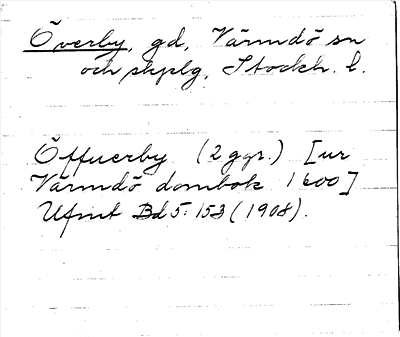 Överby, gd, Värmdö sn
och skplg, Stockh. l.
Öffuerby (2 ggr.) [ur
Värmdö dombok 1600]
Ufmt Bd 5: 153 (1908).